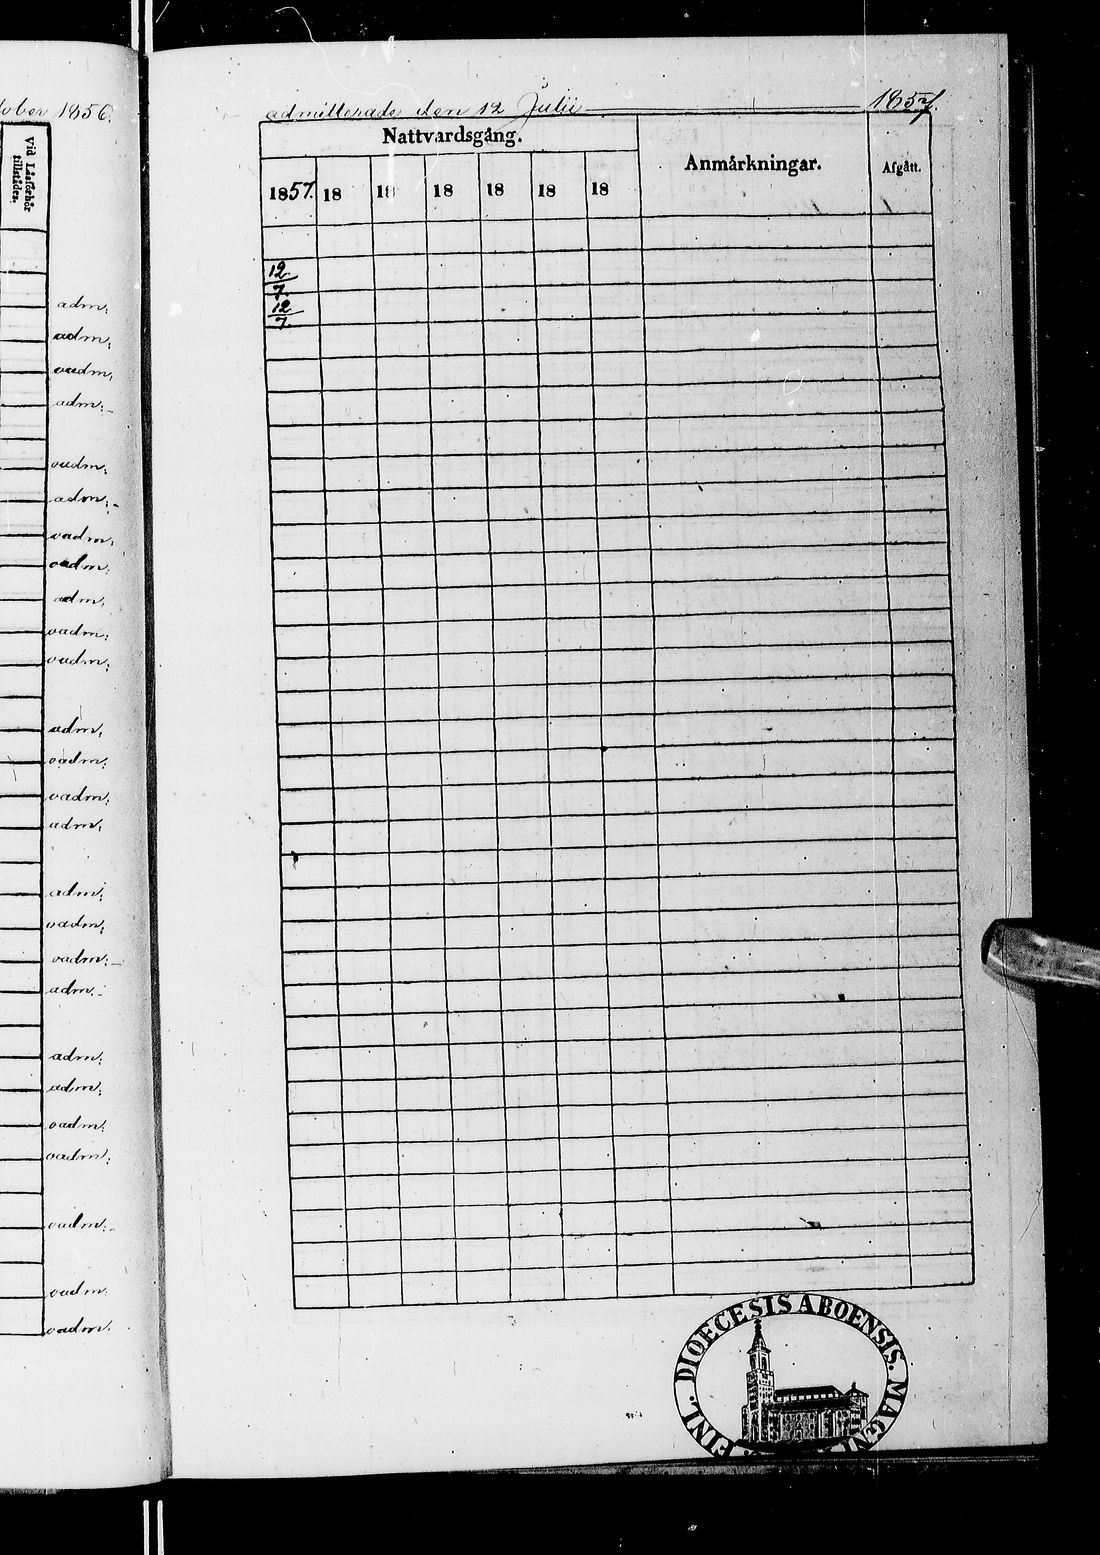 tober 1856.
Vid Läsförhör
tillstädes.
adm:
adm:
oadm:
adm:-
oadm:
adm:-
oadm:
oadm:
adm:
oadm:
oadm:
adm:
oadm:
oadm:
adm:
adm:
oadm:
oadm:-
adm:-
adm:
adm:
oadm:
oadm:
oadm:-
oadm:
oadm:
admitterade den 12 Julii 1857.
Nattvardsgång.
Anmärkningar.
Afgått.
1857. 18 18 18 18 18 18
12/7.
12/7.
DIOECESIS ABOENSIS. MAGNI FINL.